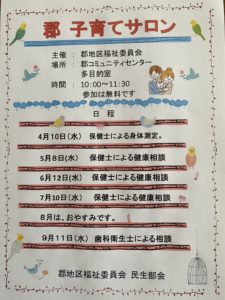 郡 子育てサロン
主催 : 郡地区福祉委員会
場所 : 郡コミュニティセンター
多目的室
時間 : 10:00～11:30
参加は無料です
日 程
4月10日(水) 保健士による身体測定。
5月8日(水) 保健士による健康相談
6月12日(水) 保健士による健康相談
7月10日(水) 保健士による健康相談
8月は、おやすみです。
9月11日(水) 歯科衛生士による相談
郡地区福祉委員会 民生部会